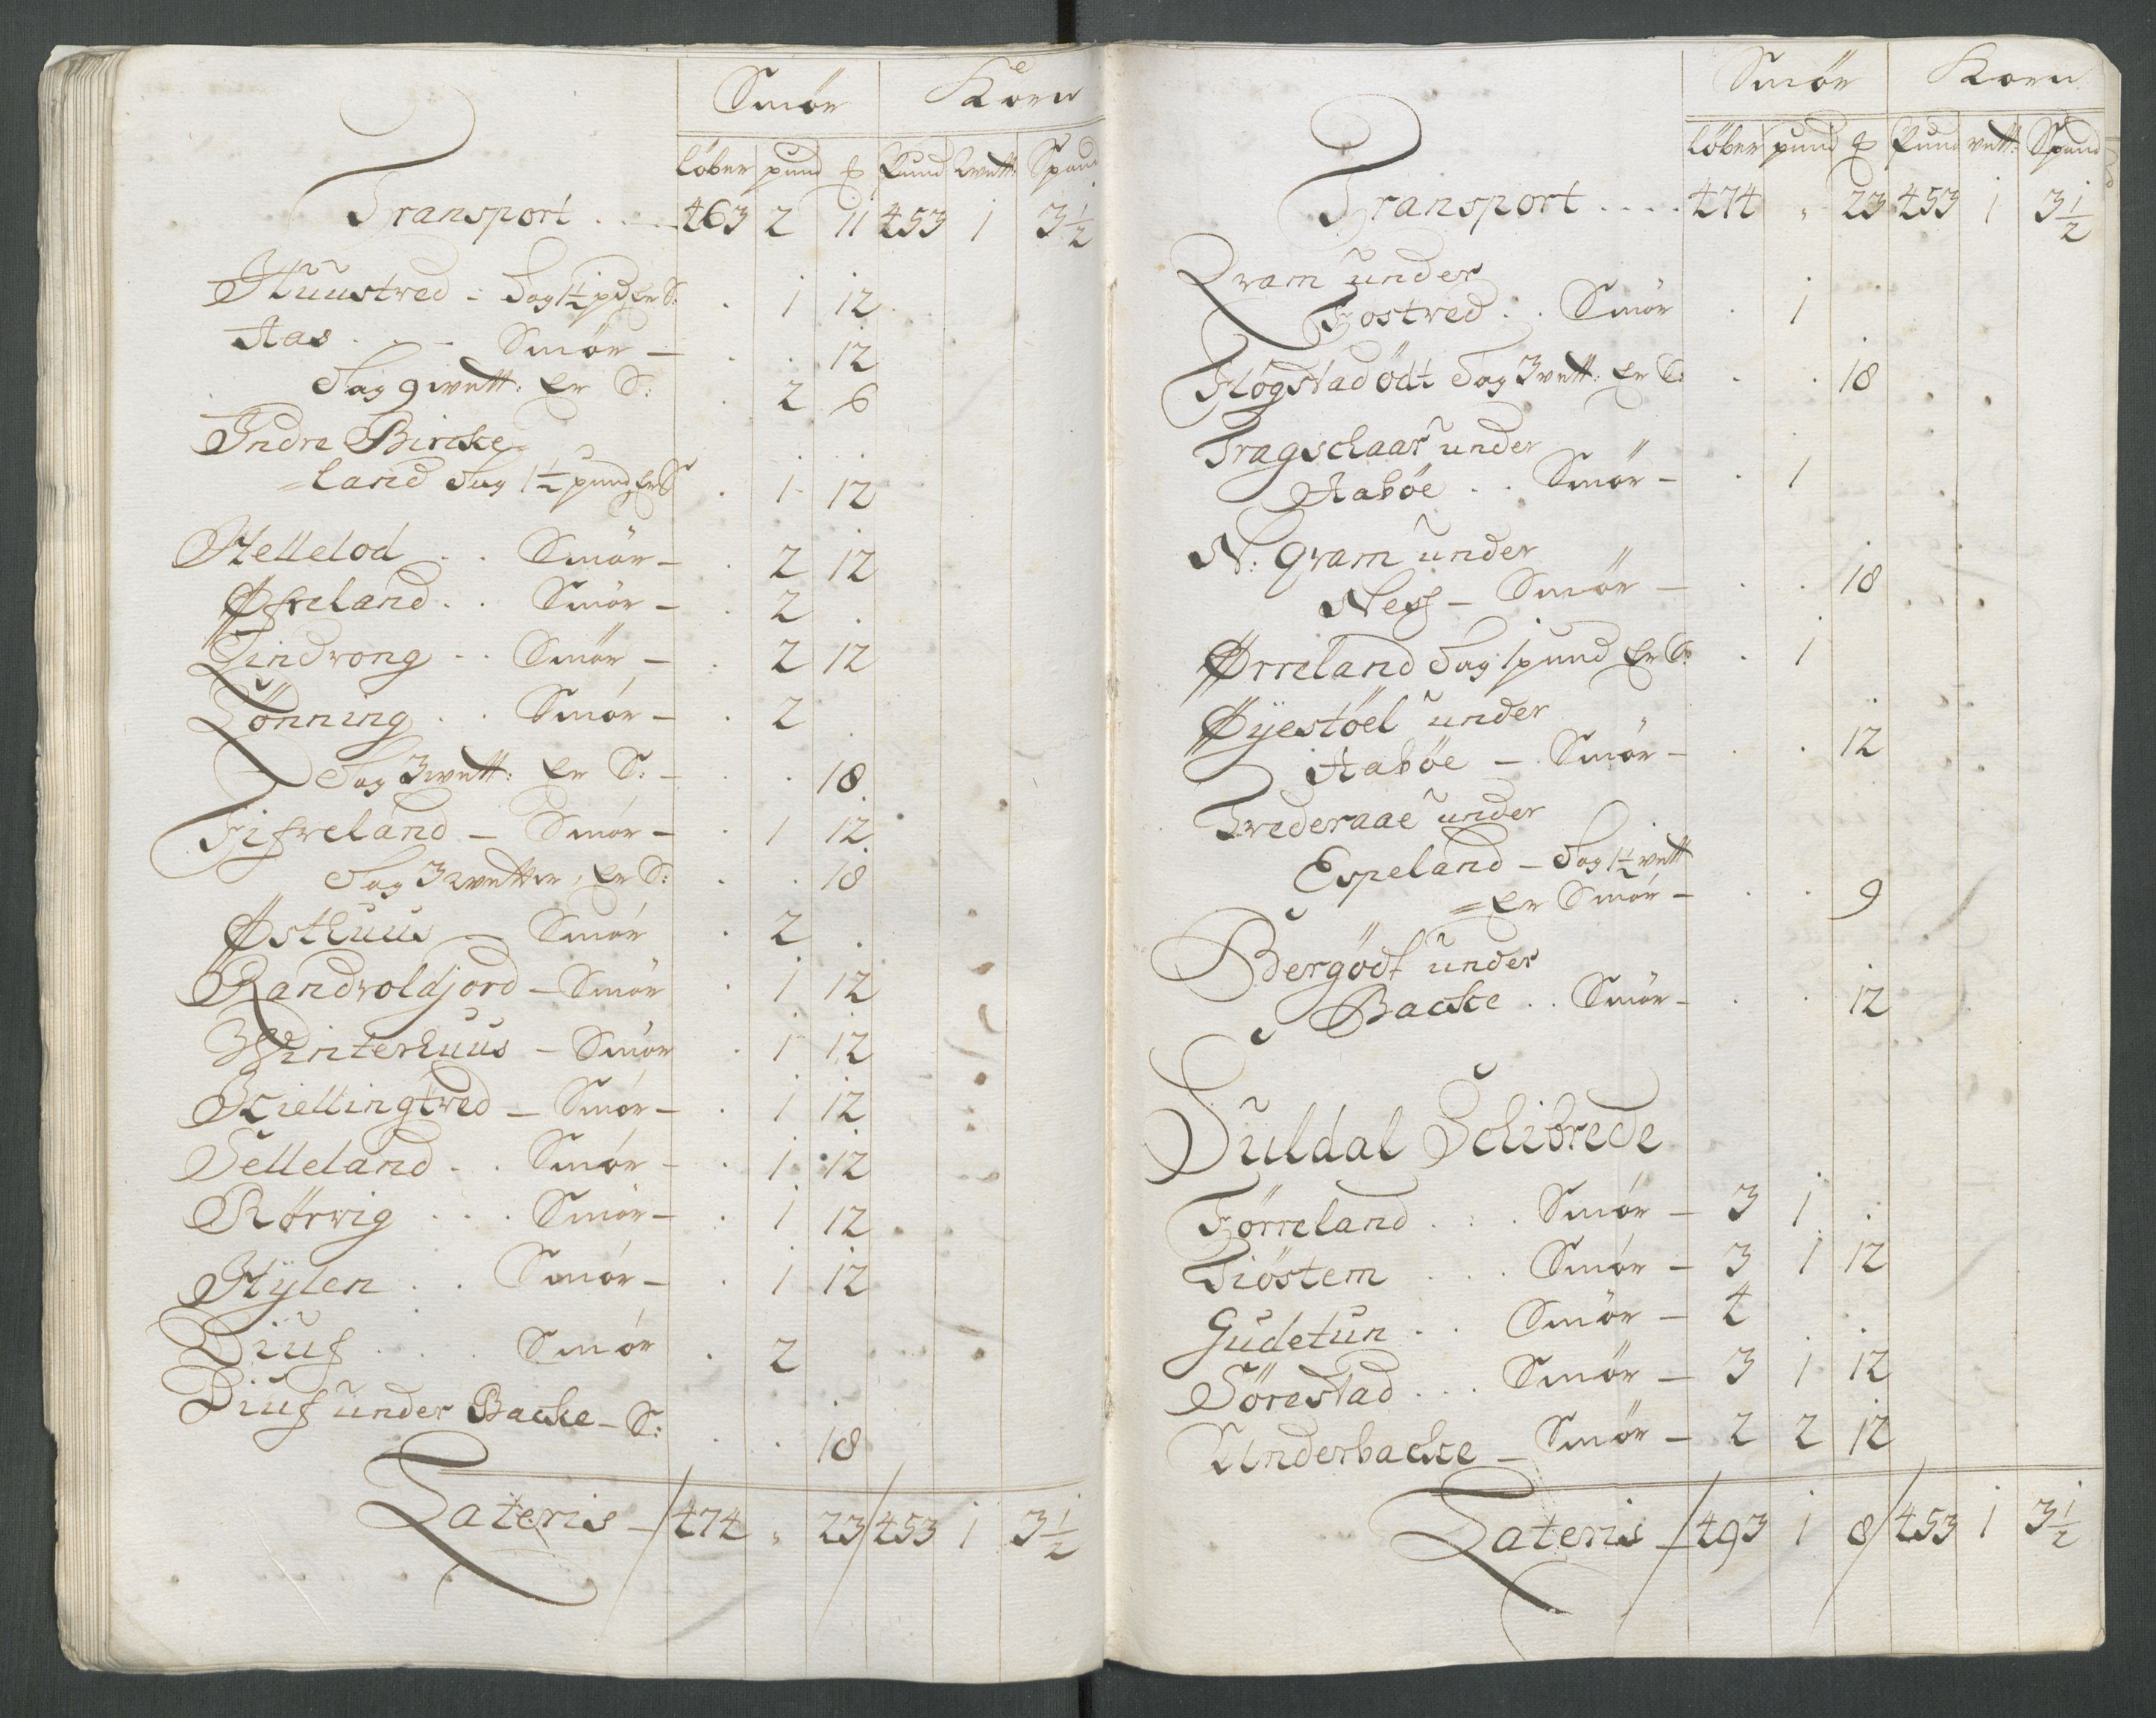 Smör Korn
löber pund ℔ Pund Wett: Spand
Transport . . . 463 2 11 453 1 3½
Huustred - Sag 1½ pd Er S: . 1 12
Aas . . - Smör - . . 12
Sag 9 wett: Er S: . 2 6
Indre Bircke
=land Sag 1½ pund Er S . 1 12
Hellelod . . Smör - . 2 12
Øfreland . . Smör - . 2 .
Lindvong - . Smör - . 2 12
Lönning . . Smör - . 2 .
Sag 3 wett: Er S: - . . 18
Fifreland - Smör - . 1 12
Sag 3 wetter, Er S: . . 18
Østhuus - Smör . 2 .
Randvoldjord - Smör . 1 12
Winterhuus - Smör . 1 12
Kiellingtred - Smör - . 1 12
Selleland . . Smör - . 1 12
Rörvig . . . Smör - . 1 12
Hylen . . Smör - . 1 12
Diuf . . . Smör . 2 .
Diuf under Backe - S: . . 18
Lateris - 474 " 23 453 1 3½
Smör Korn
löber pund ℔ Pund vett: Spand
Transport . . . . 474 " 23 453 1 3½
Qvam under
Fostred . . Smör . 1 .
Högstadödt Sag 3 vett: Er S: . . 18
Tragschaar under
Aaböe . . Smör - . 1 .
N: Qvam under
Ness - Smör - . . 18
Ørreland Sag 1 pund Er S: . 1 .
Øyestöel under
Aaböe - Smör - . . 12
Trideraae under
Espeland - Sag 1½ vett
=Er Smör - . . 9
Bergödt under
Backe . . Smör - . . 12
Suldal Schibrede
Förreland . . . Smör - 3 1 .
Tiöstem . . . Smör - 3 1 12
Gudetun . . Smör - 4 . .
Sörestad . . . Smör - 3 1 12
Underbacke - Smör - 2 2 12
Lateris - 493 1 8 453 1 3½